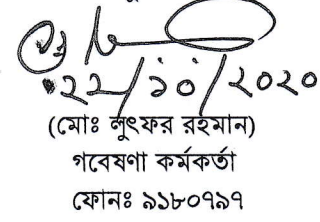 ২২/১০/২০২০
(মোঃ লুৎফর রহমান)
গবেষণা কর্মকর্তা
ফোনঃ ৯১৮০৭৯৭